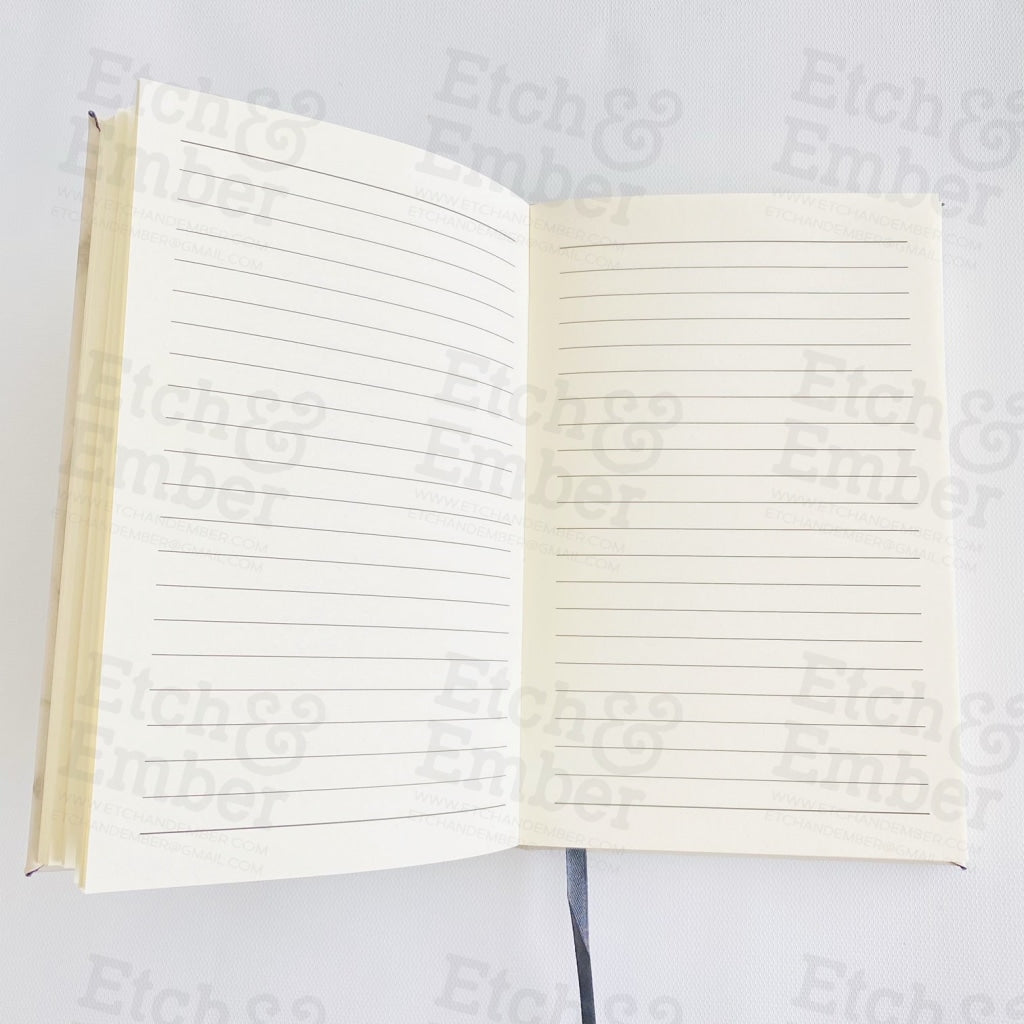 Etch&
Ember
WWW.ETCHANDEMBER.COM
ETCHANDEMBER@GMAIL.COM
Etch&
Ember
WWW.ETCHANDEMBER.COM
ETCHANDEMBER@GMAIL.COM
Etch&
Ember
WWW.ETCHANDEMBER.COM
ETCHANDEMBER@GMAIL.COM
Etch&
Ember
WWW.ETCHANDEMBER.COM
ETCHANDEMBER@GMAIL.COM
Etch&
Ember
WWW.ETCHANDEMBER.COM
ETCHANDEMBER@GMAIL.COM
Etch&
Ember
WWW.ETCHANDEMBER.COM
ETCHANDEMBER@GMAIL.COM
Etch&
Ember
WWW.ETCHANDEMBER.COM
ETCHANDEMBER@GMAIL.COM
Etch&
Ember
WWW.ETCHANDEMBER.COM
ETCHANDEMBER@GMAIL.COM
Etch&
Ember
WWW.ETCHANDEMBER.COM
ETCHANDEMBER@GMAIL.COM
Etch&
Etch&
Etch&